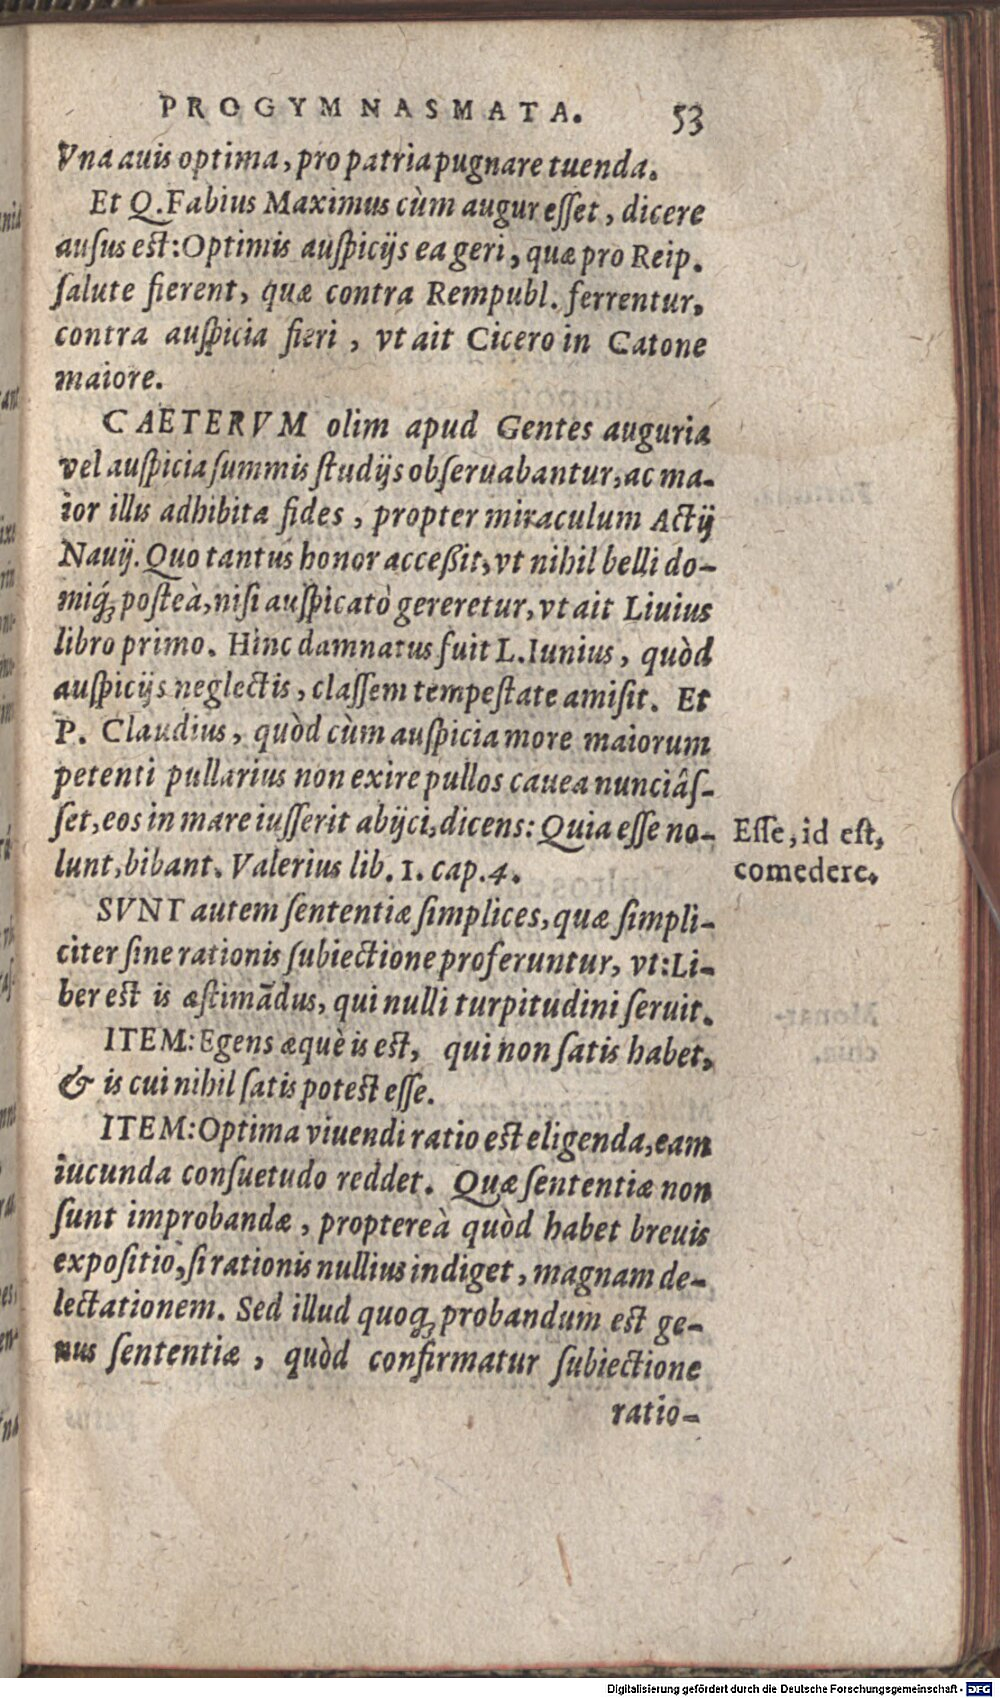 PROGYMNASMATA. 53
Vna auis optima, pro patria pugnare tuenda.
Et Q. Fabius Maximus cùm augur esset, dicere
ausus est: Optimis auspicijs ea geri, quæ pro Reip.
salute fierent, quæ contra Rempubl. ferrentur,
contra auspicia fieri, vt ait Cicero in Catone
maiore.
CAETERVM olim apud Gentes auguria
vel auspicia summis studijs obseruabantur, ac ma-
ior illis adhibita fides, propter miraculum Actij
Nauij. Quo tantus honor accessit, vt nihil belli do-
miq́; posteà, nisi auspicatò gereretur, vt ait Liuius
libro primo. Hinc damnatus fuit L. Iunius, quòd
auspicijs neglectis, classem tempestate amisit. Et
P. Claudius, quòd cùm auspicia more maiorum
petenti pullarius non exire pullos cauea nunciâs-
set, eos in mare iusserit abijci, dicens: Quia esse no-
lunt, bibant. Valerius lib. 1. cap. 4.
Esse, id est,
comedere.
SVNT autem sententiæ simplices, quæ simpli-
citer sine rationis subiectione proferuntur, vt: Li-
ber est is æstimādus, qui nulli turpitudini seruit.
ITEM: Egens æquè is est, qui non satis habet,
& is cui nihil satis potest esse.
ITEM: Optima viuendi ratio est eligenda, eam
iucunda consuetudo reddet. Quæ sententiæ non
sunt improbandæ, proptereà quòd habet breuis
expositio, si rationis nullius indiget, magnam de-
lectationem. Sed illud quoq; probandum est ge-
nus sententiæ, quòd confirmatur subiectione
ratio-
Digitalisierung gefördert durch die Deutsche Forschungsgemeinschaft - DFG